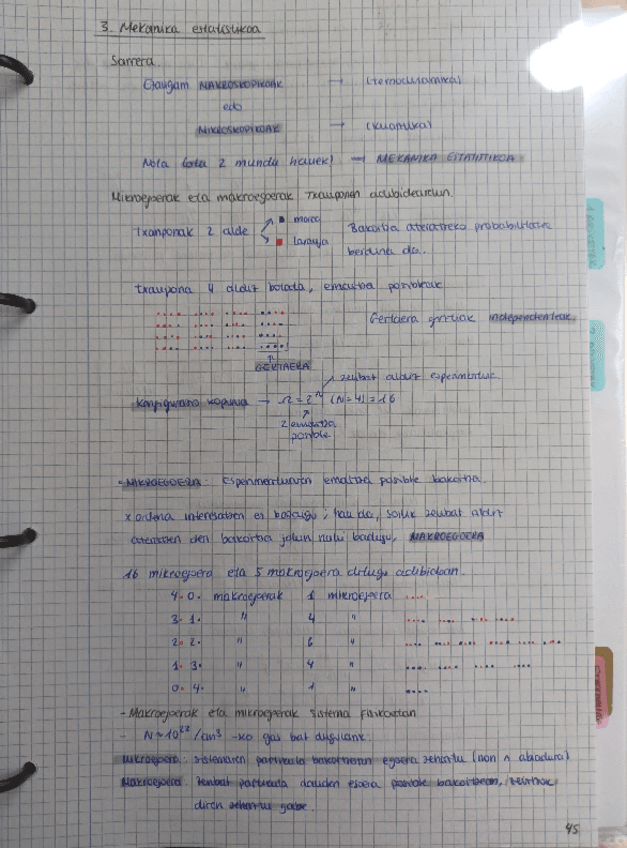 3. Mekanika estatistikoa
Sarrera.
Ezaugarri MAKROSKOPIKOAK → (termodinamika)
edo
MIKROSKOPIKOAK → (kuantika)
Nola lotu 2 mundu hauek? → MEKANIKA ESTATISTIKOA
Mikroegoerak eta makroegoerak txanponen adibidearekin.
Txanponak 2 alde morea
laranja
Bakoitza ateratzeko probabilitatea
berdina da.
txanpona 4 aldiz botata, emaitza posibleak
Gertaera guztiak independenteak.
GERTAERA
zenbat aldiz esperimentua
konfigurazio kopurua → Ω = 2^N (N=4) = 16
2 emaitza
posible
- MIKROEGOERA: esperimentuaren emaitza posible bakoitza.
x ordena interesatzen ez bazaigu; hau da, soilik zenbat aldiz
ateratzen den bakoitza jakin nahi badugu, MAKROEGOERA
16 mikroegoera eta 5 makroegoera ditugu adibidean.
4· 0· makroegoerak 1 mikroegoera
3· 1· " 4 "
2· 2· " 6 "
1· 3· " 4 "
0· 4· " 1 "
- Makroegoerak eta mikroegoerak sistema fisikoetan
- N~10²² /cm³ -ko gas bat dugularik.
Mikroegoera: sistemaren partikula bakoitzaren egoera zehaztu (non ∧ abiadura)
Makroegoera: zenbat partikula dauden egoera posible bakoitzean, zeintzuk
diren zehaztu gabe.
45